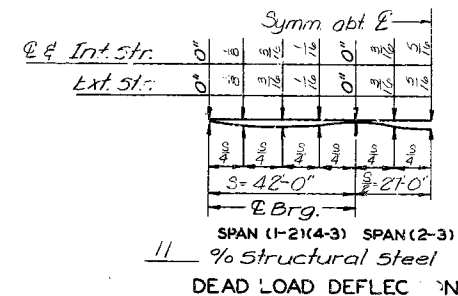 Symm. abt ℄
℄ & Int. str. 0" 1/8 3/16 1/16 0" 3/16 5/16
Ext. str. 0" 1/8 3/16 1/16 0" 3/16 5/16
S/4 S/4 S/4 S/4 S/4 S/4
S= 42'-0" S/2=21'-0"
℄ Brg.
SPAN (1-2)(4-3) SPAN (2-3)
11 % Structural Steel
DEAD LOAD DEFLEC ON